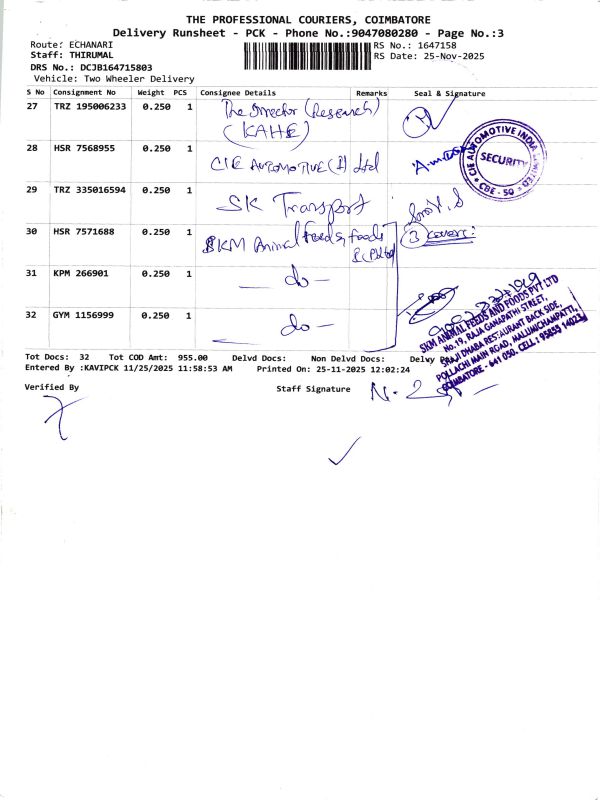 THE PROFESSIONAL COURIERS, COIMBATORE
Delivery Runsheet - PCK - Phone No.:9047080280 - Page No.:3
Route: ECHANARI
RS No.: 1647158
Staff: THIRUMAL
RS Date: 25-Nov-2025
DRS No.: DCJB164715803
Vehicle: Two Wheeler Delivery
S No Consignment No Weight PCS Consignee Details Remarks Seal & Signature
27 TRZ 195006233 0.250 1 The Director (Research)
(KAHE)
28 HSR 7568955 0.250 1 CIE AUTOMOTIVE (I) Ltd
CIE AUTOMOTIVE INDIA LIMITED
SECURITY
CBE - 50
29 TRZ 335016594 0.250 1 SK Transport
30 HSR 7571688 0.250 1 SKM Animal Feeds & foods
(3) covers:
31 KPM 266901 0.250 1 — do —
32 GYM 1156999 0.250 1 — do —
SKM ANIMAL FEEDS AND FOODS PVT LTD
No.19, RAJA GANAPATHI STREET,
SHAJI DHABA RESTAURANT BACK SIDE,
POLLACHI MAIN ROAD, MALUMICHAMPATTI,
COIMBATORE - 641 050. CELL : 95859 14023
Tot Docs: 32 Tot COD Amt: 955.00 Delvd Docs: Non Delvd Docs: Delvy
Entered By :KAVIPCK 11/25/2025 11:58:53 AM Printed On: 25-11-2025 12:02:24
Verified By
Staff Signature